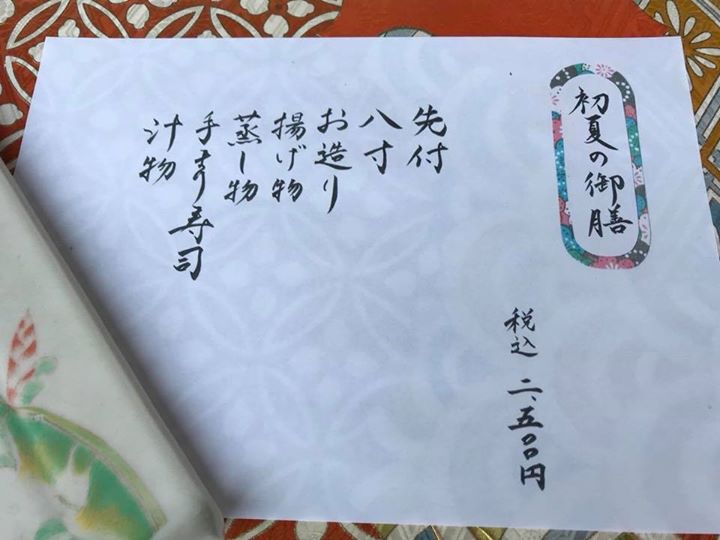 初夏の御膳
税込 二、五〇〇円
先付
八寸
お造り
揚げ物
蒸し物
手まり寿司
汁物